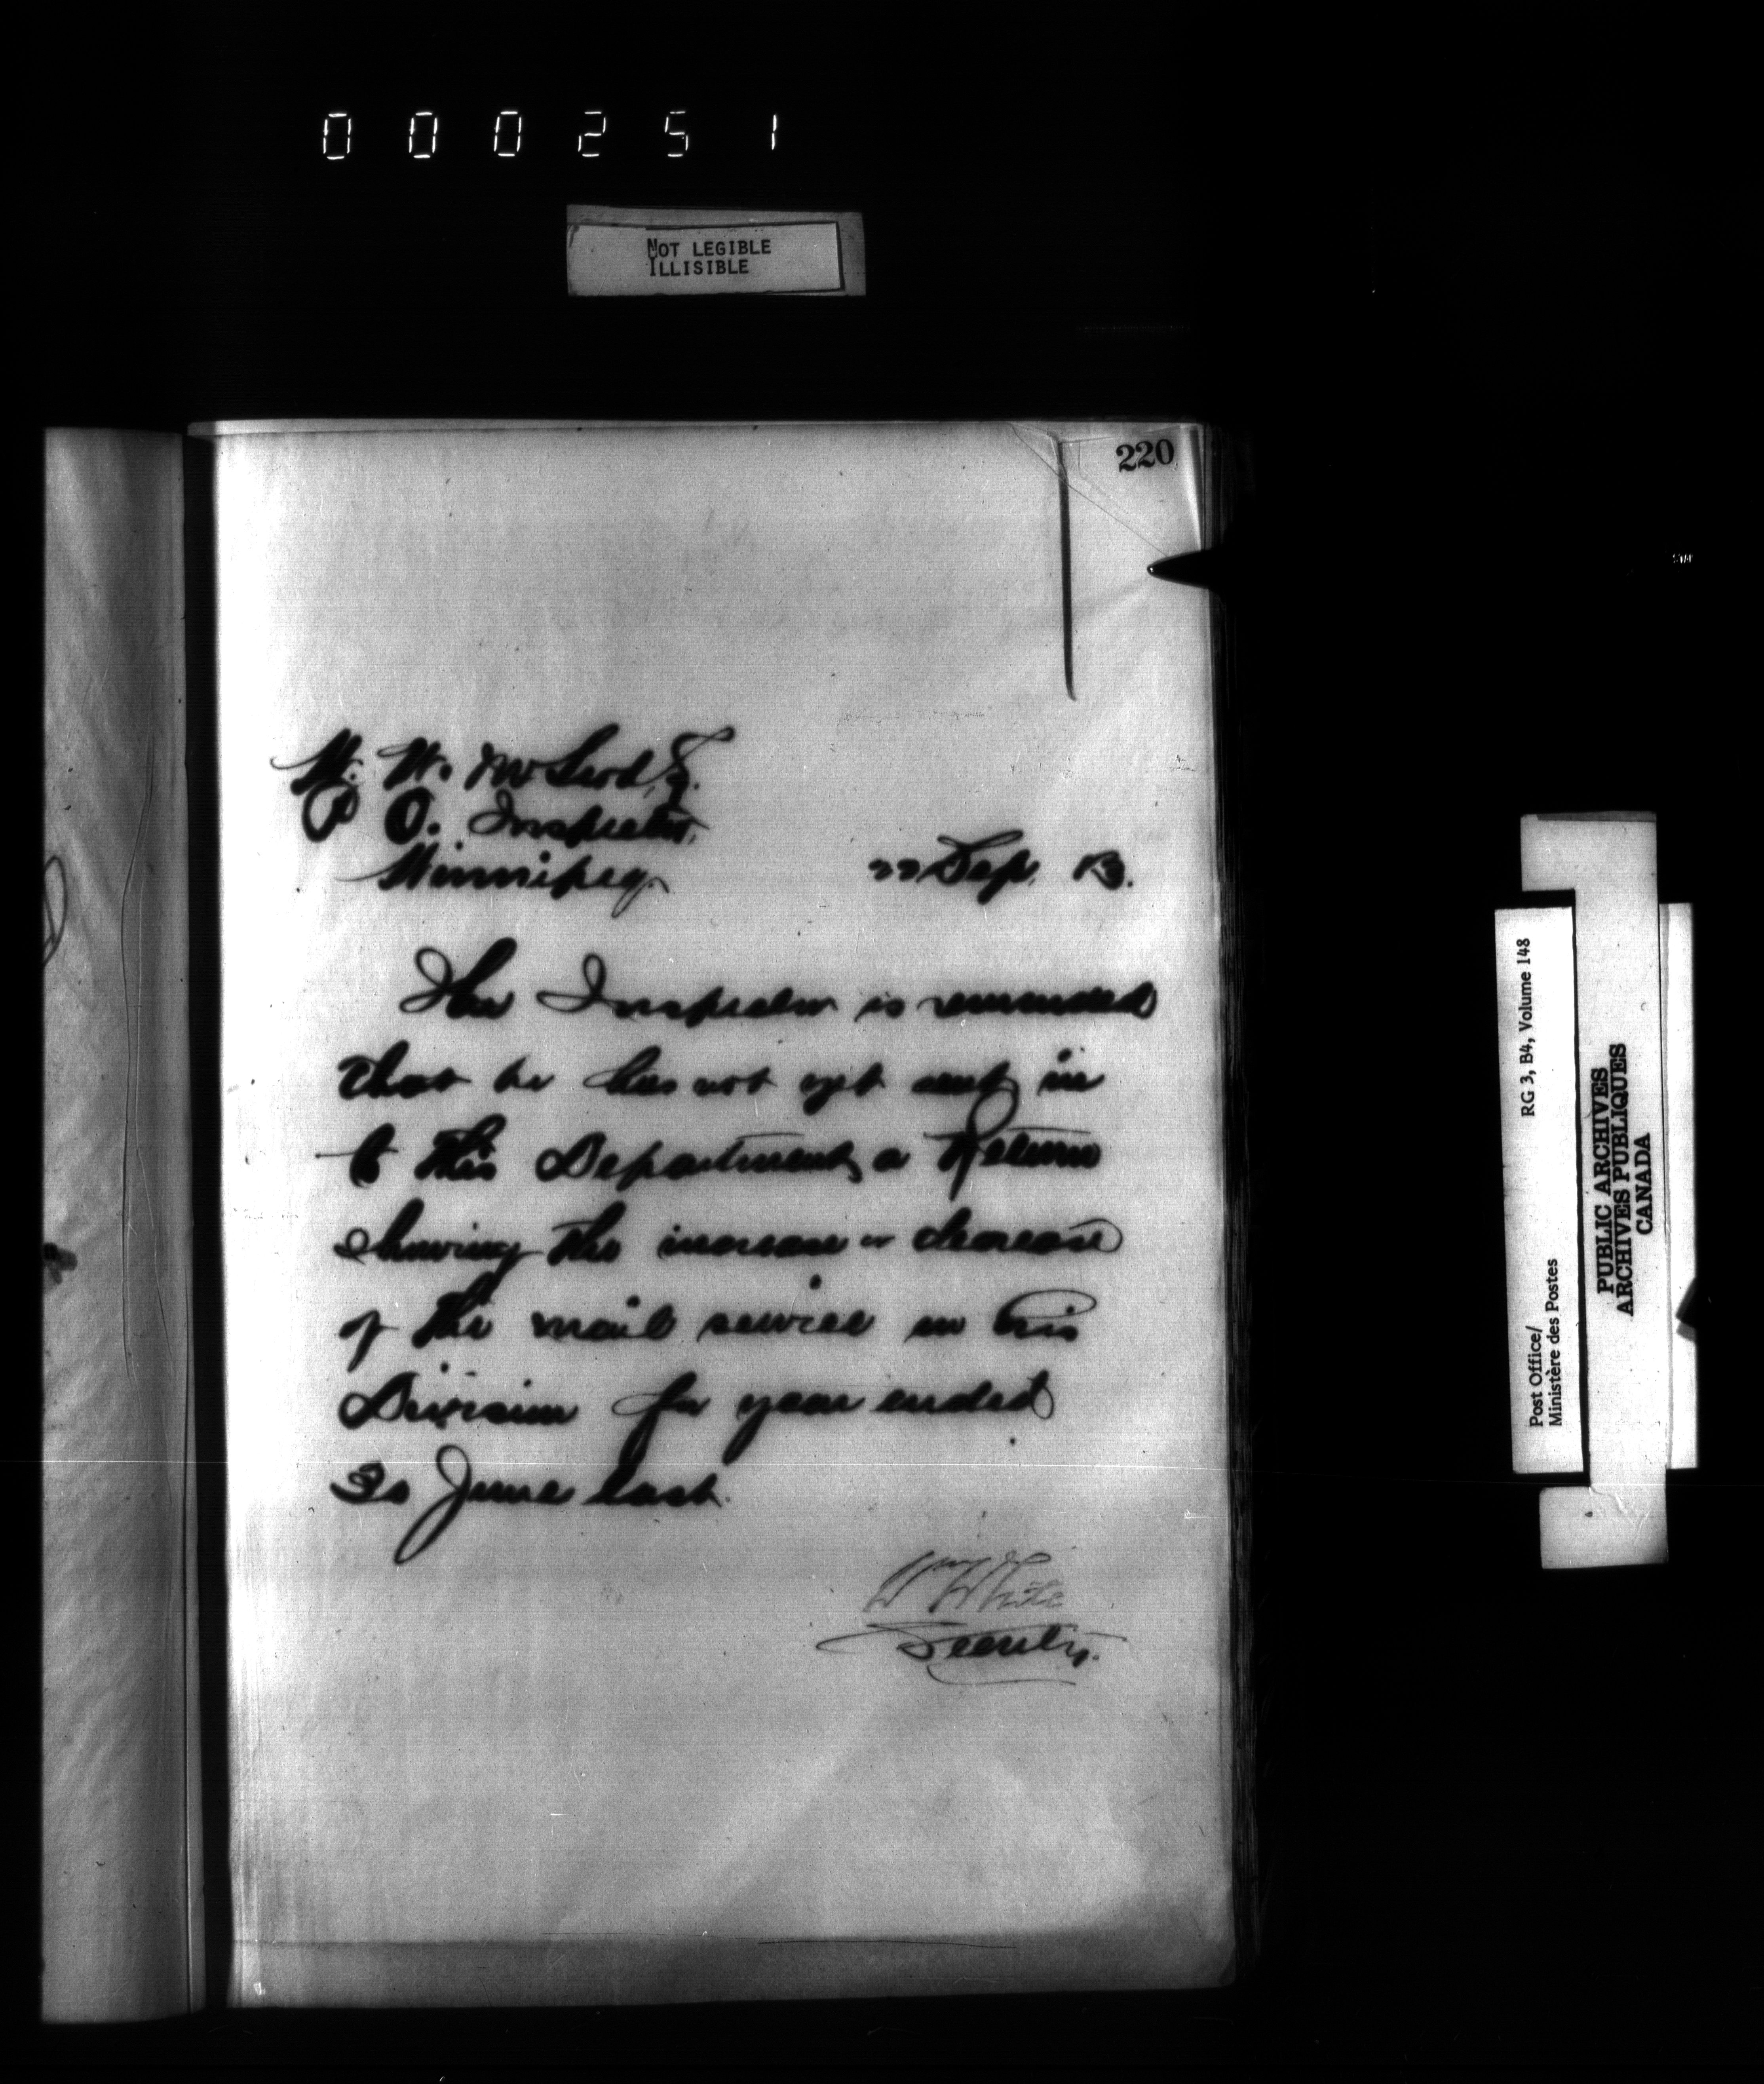 000251
NOT LEGIBLE
ILLISIBLE
220
W. W. McLeod, Esq.
P O. Inspector,
Winnipeg. 22 Sep. 93.
The Inspector is reminded
that he has not yet sent in
to this Department a Return
showing the increase or decrease
of the mail service in his
Division for year ended
30 June last.
Wm White
Secretary.
RG 3, B4, Volume 148
Post Office/
Ministère des Postes
PUBLIC ARCHIVES
ARCHIVES PUBLIQUES
CANADA